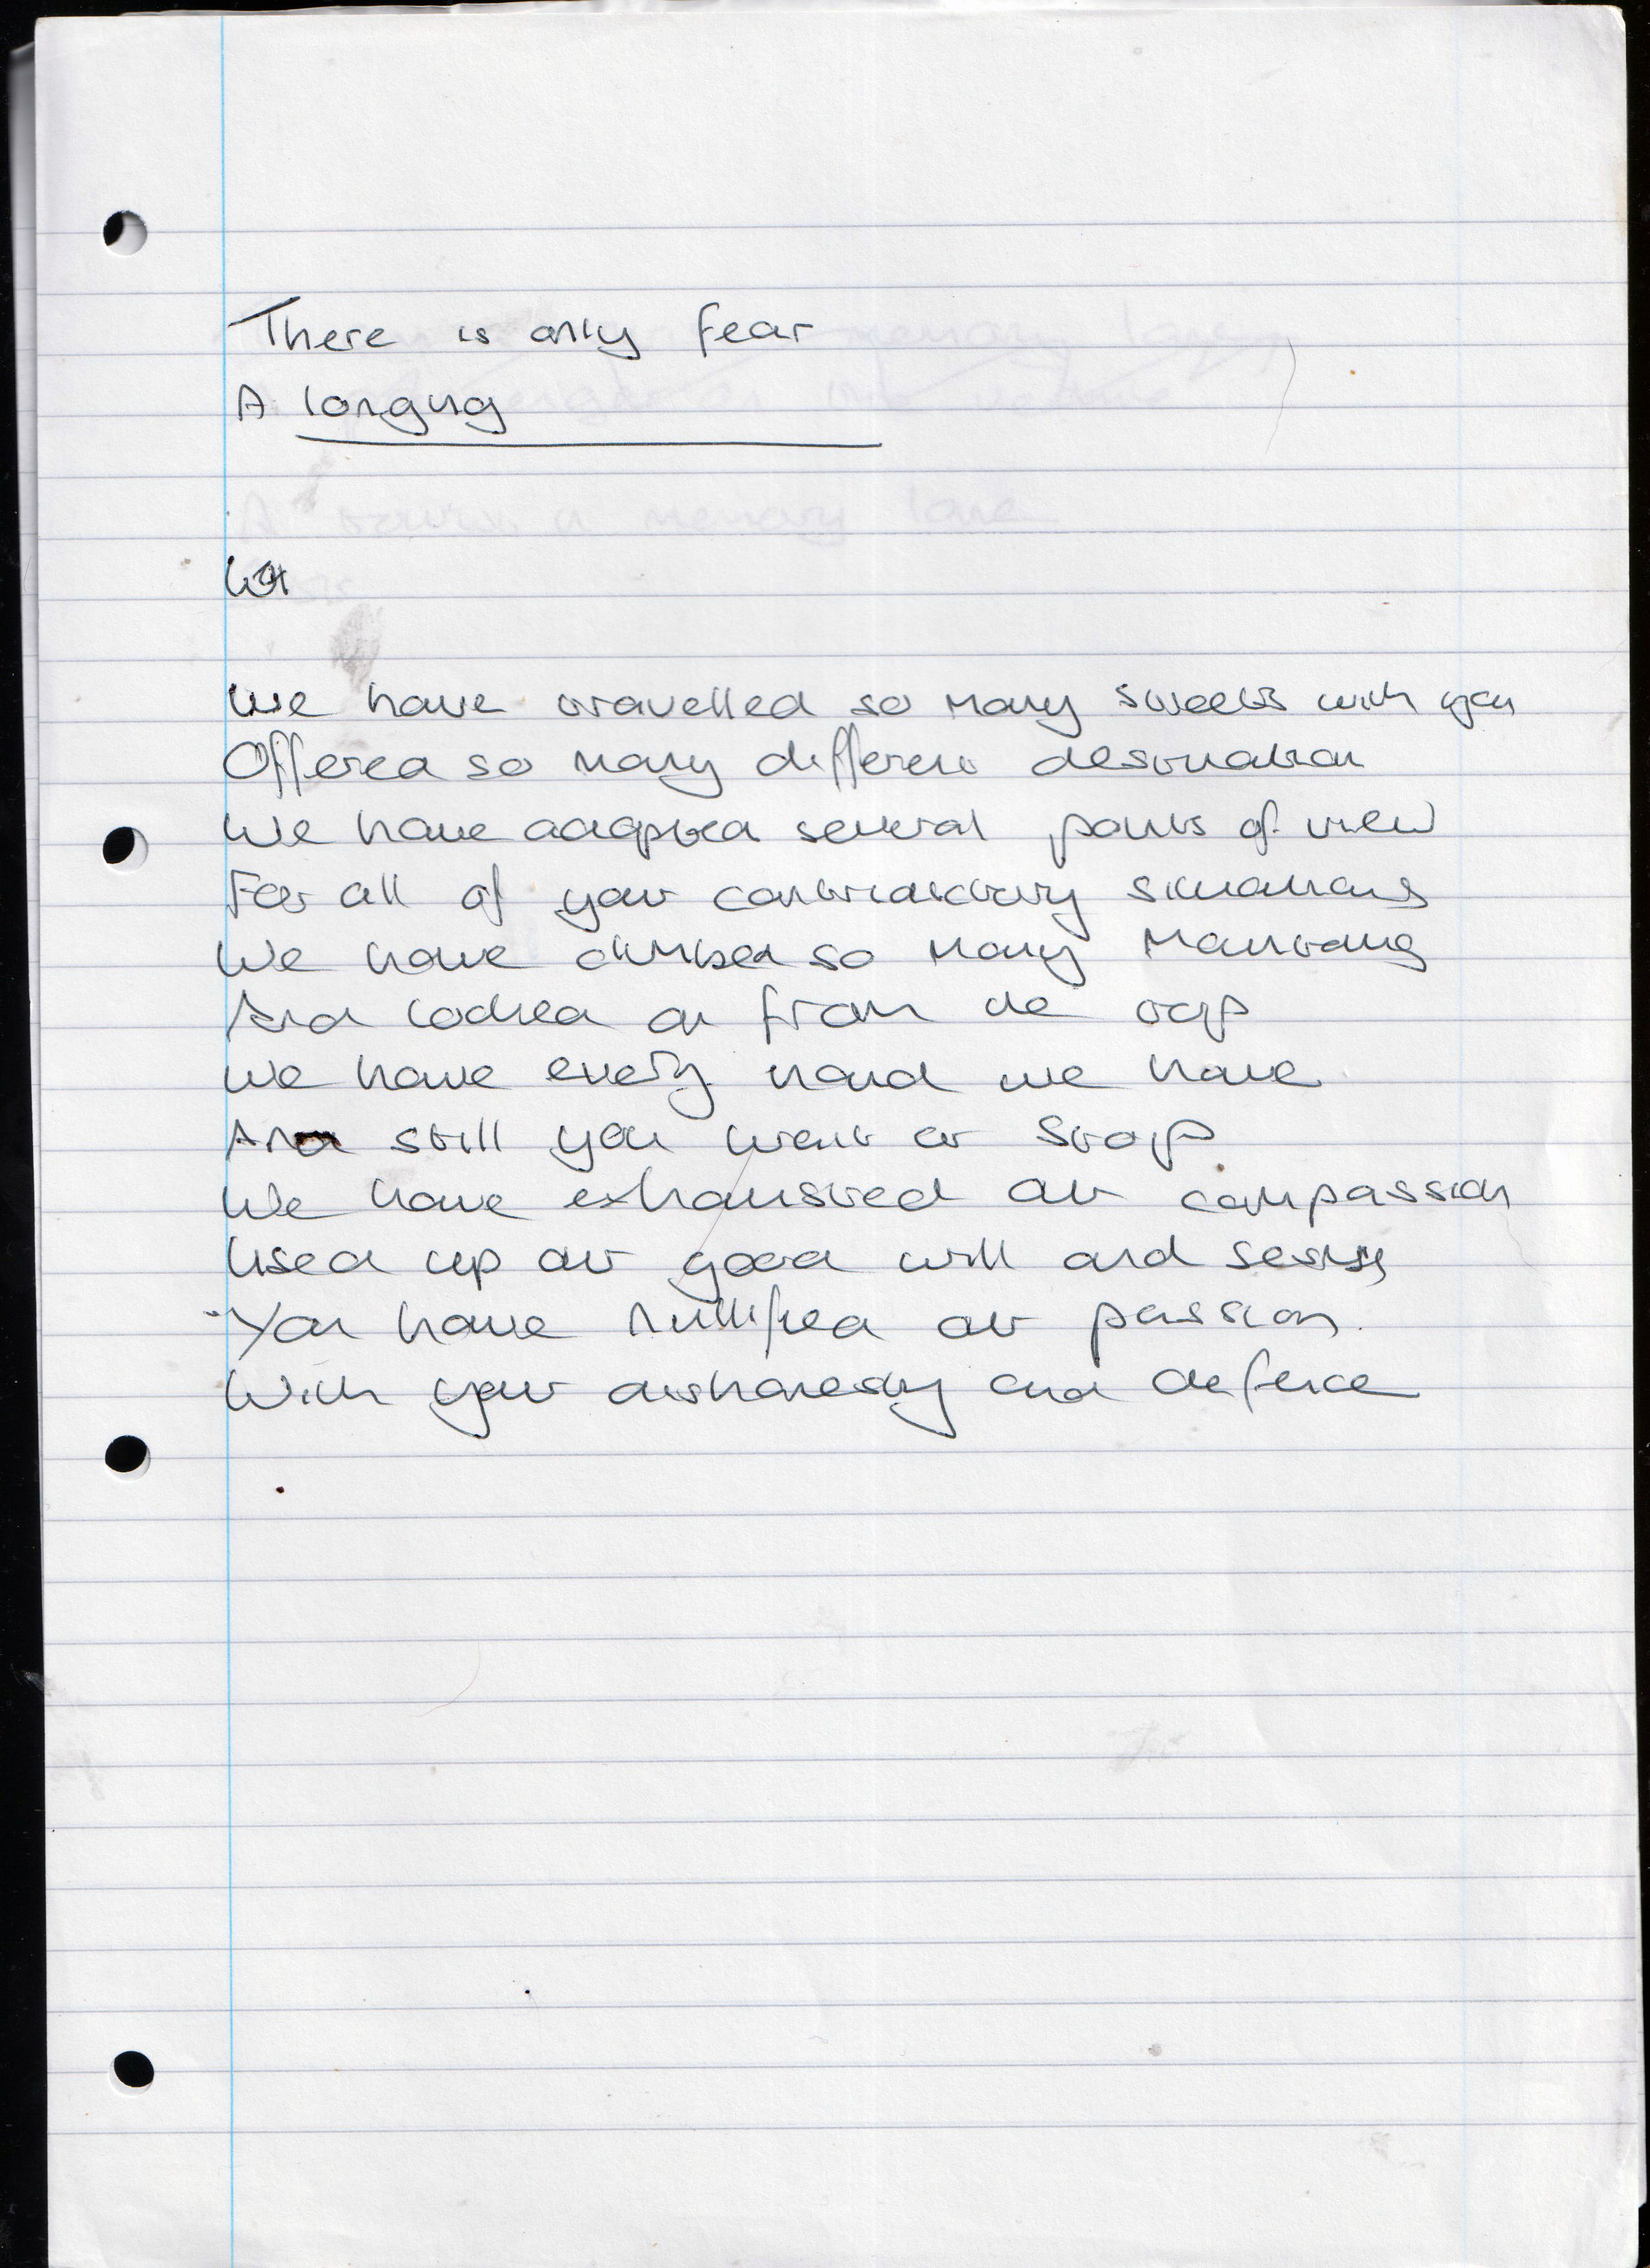 There is only fear
A longing
We have travelled so many streets with you
Offered so many different destination
We have adopted several points of view
For all of your contradictory situations
We have climbed so many mountains
And looked on from the top
We have every hand we have
And still you want to stop
We have exhausted our compassion
Used up our good will and sense
You have nullified our passion
With your dishonesty and defence